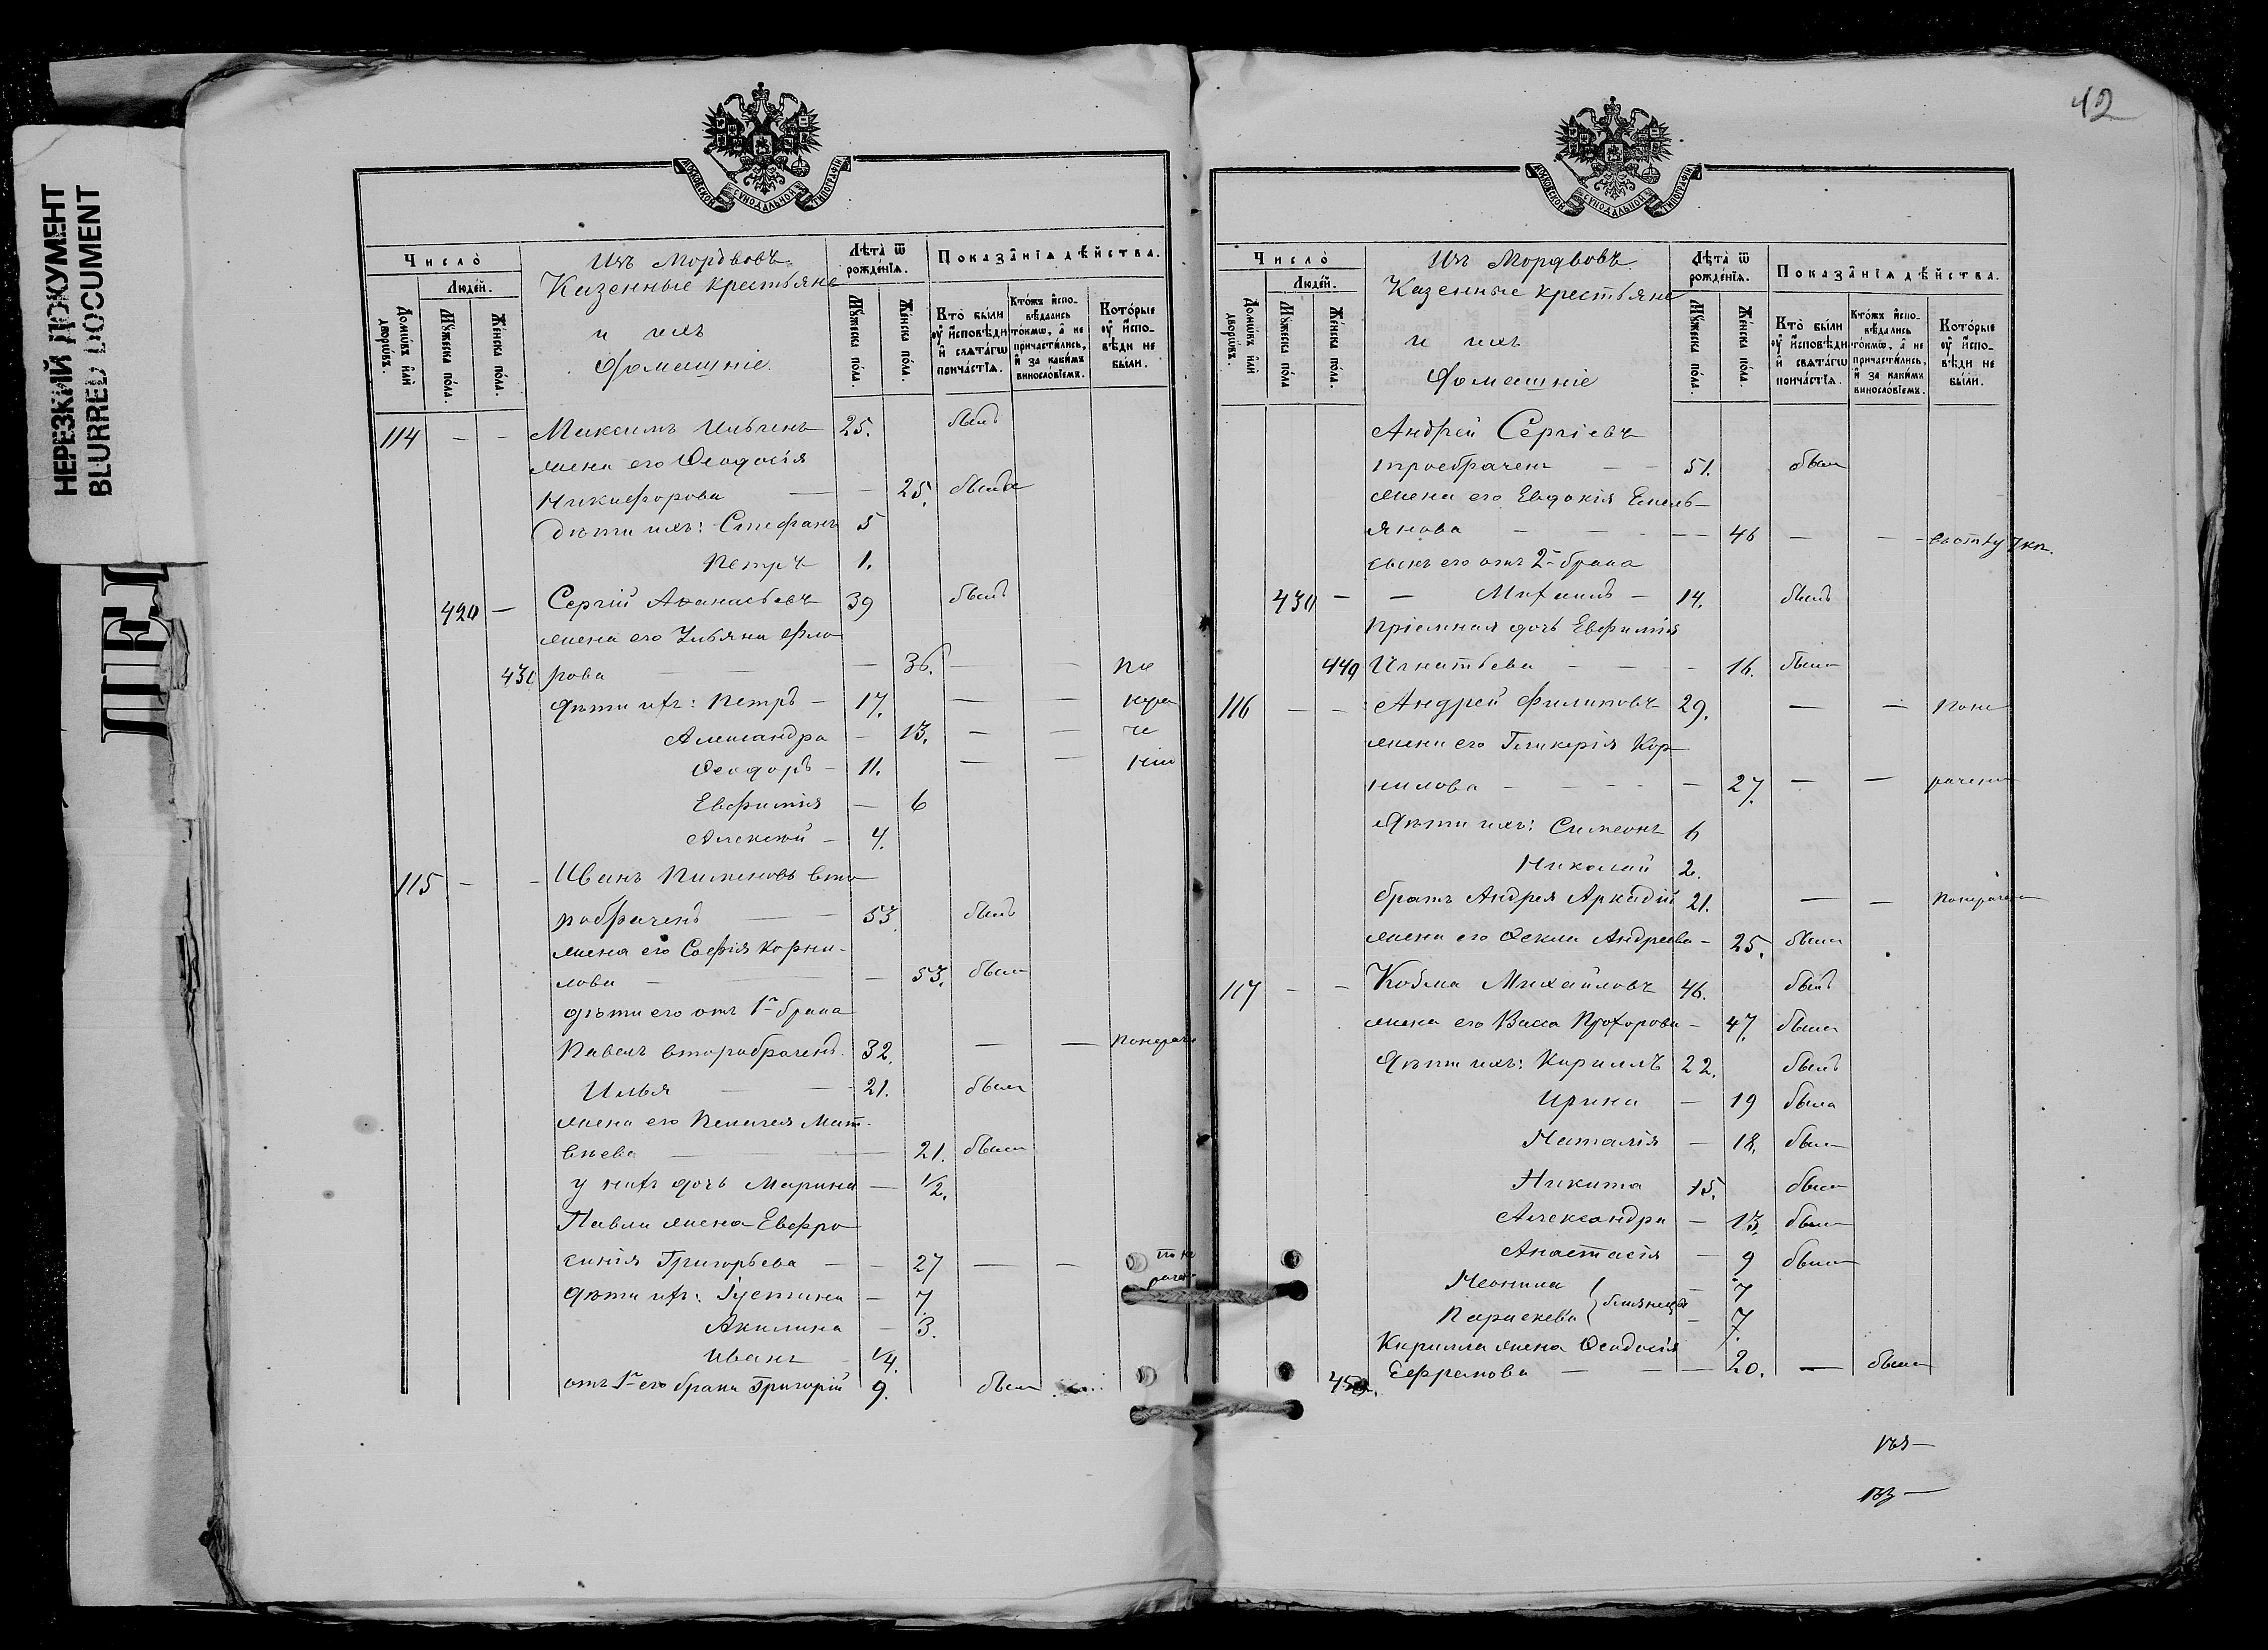 42
НЕРЕЗКИЙ ДОКУМЕНТ
BLURRED DOCUMENT
МОСКОВСКОЙ СѴНОДАЛЬНОЙ ТИПОГРАФІИ
Число̀
Людей.
Домѡвъ и҆лѝ дворѡвъ.
Мꙋжеска по́ла.
Же́нска по́ла.
Изъ Мордвовъ
Казенные крестьяне
и ихъ
домашніе.
Лѣта̀ ѿ рожде́нїѧ.
Мꙋжеска по́ла.
Же́нска по́ла.
Показа̂нїѧ дѣ́йства.
Кто̀ бы́ли ᲂу҆ и҆сповѣди и҆ свѧта́гѡ прича́стїѧ.
Кто́жъ и҆спо-вѣдались то́кмѡ, а҆ не причасти́лись, и҆ за каки́мъ винослѡ́вїемъ.
Кото́рые ᲂу҆ и҆спо-вѣди не бы́ли.
114 — — Максимъ Ильинъ 25. былъ
жена его Ѳеодосія
Никифорова — — 25. была
Дѣти ихъ: Стефанъ 5
Петръ 1.
420 — Сергій Аѳанасьевъ 39 былъ
жена его Ульяна Фло
430 рова — — 36. — — По
дѣти ихъ: Петръ — 17. — — нера
Александра — 13. — — че
Ѳеодоръ — 11. — — нію
Евфимія — 6
Алексій — 4.
115 — — Иванъ Пименовъ вто
робраченъ — — 53 былъ
жена его Софія Корни-
лова — — 53. была
дѣти его отъ 1го брака
Павелъ второбраченъ. 32. — — Понераче
Илья — — 21. былъ
жена его Пелагея Мат-
вѣева — — 21. была
у нихъ дочь Марина — 1/2.
Павла жена Евфро
синія Григорьева — — 27 — — по не
раче
дѣти ихъ: Іустина — 7.
Акилина — 3.
Иванъ — 1/4.
отъ 1го его брака Григорій 9. былъ
Число̀
Людей.
Домѡвъ и҆лѝ дворѡвъ.
Мꙋжеска по́ла.
Же́нска по́ла.
Изъ Мордвовъ
Казенные крестьяне
и ихъ
домашніе
Лѣта̀ ѿ рожде́нїѧ.
Мꙋжеска по́ла.
Же́нска по́ла.
Показа̂нїѧ дѣ́йства.
Кто̀ бы́ли ᲂу҆ и҆сповѣди и҆ свѧта́гѡ прича́стїѧ.
Кто́жъ и҆спо-вѣдались то́кмѡ, а҆ не причасти́лись, и҆ за каки́мъ винослѡ́вїемъ.
Кото́рые ᲂу҆ и҆спо-вѣди не бы́ли.
Андрей Сергіевъ
троебрачен — — 51. былъ
жена его Евдокія Емель-
янова — — — 46 — —
сынъ его отъ 2го брака
430 — — Михаилъ — 14. былъ
пріемная дочь Евфимія
440 Игнатьева — — — 16. была
116 — — Андрей Филиповъ 29. — — Поне
жена его Гликерія Кор
нилова — — — — 27. — — рачен
Дѣти ихъ: Симеонъ 6
Николай 2.
братъ Андрея Аркадій 21. — — Понерачен
жена его Ѳекла Андреева — 25. была
117 — — Козма Михайловъ 46. былъ
жена его Васса Прохорова — 47. была
Дѣти ихъ: Кириллъ 22. былъ
Ирина — 19 была
Наталія — 18. была
Никита 15. былъ
Александра — 13. была
Анастасія — 9 была
Неонила — 7
близнецы
Параскева — 7.
Кирилла жена Ѳеодосія
450. Ефремова — — — 20. — была